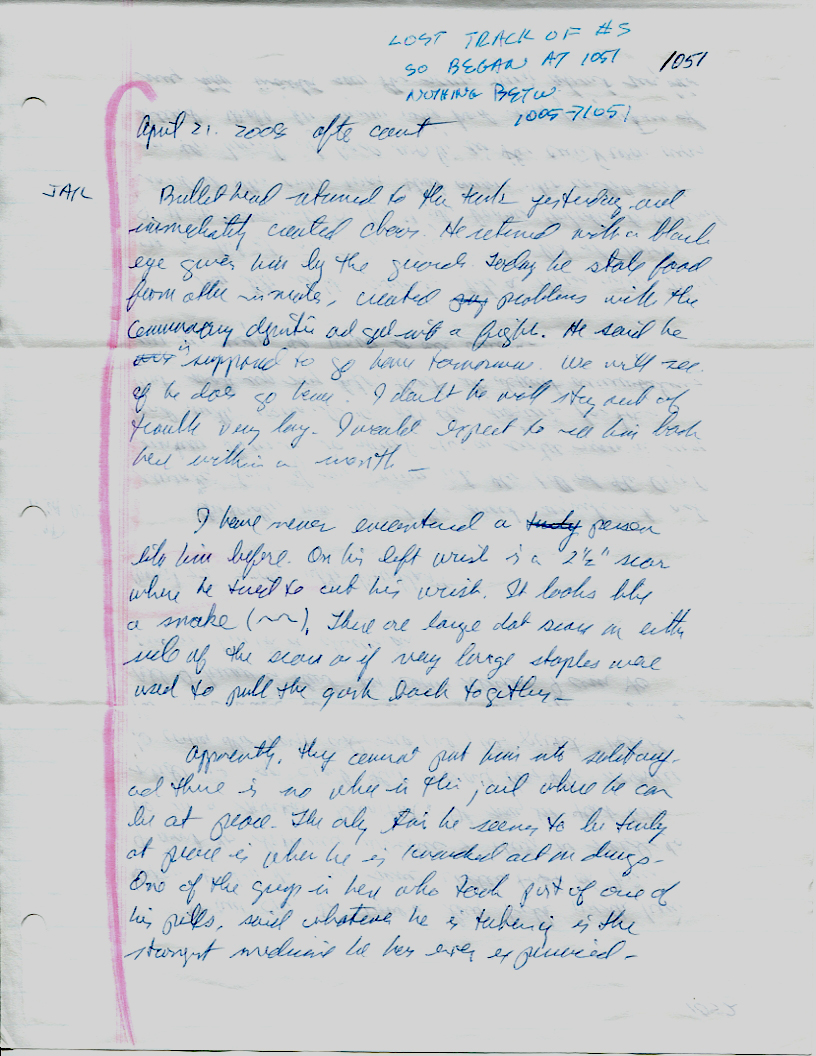 LOST TRACK OF #S
SO BEGAN AT 1051
1051
NOTHING BETW
1005→1051
April 21. 2008 after count
JAIL
Bullethead returned to the tank yesterday and
immediately created chaos. He returned with a black
eye given him by the guards. Today he stole food
from other inmates, created problems with the
commissary and got into a fight. He said he
is supposed to go home tomorrow. We will see
if he does go home. I doubt he will stay out of
trouble very long. I would expect to see him back
here within a month –
I have never encountered a truly person
like him before. On his left wrist is a 2½" scar
where he tried to cut his wrist. It looks like
a snake (~~). There are large dot scars on either
side of the scar as if very large staples were
used to pull the gash back together –
Apparently, they cannot put him into solitary
and there is no where in this jail where he can
be at peace. The only time he seems to be truly
at peace is when he is knocked out on drugs –
One of the guys in here who took part of one of
his pills, said whatever he is taking is the
strongest medicine he has ever experienced –